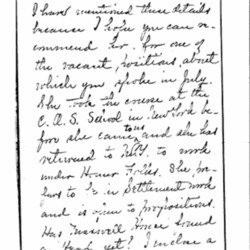 I have mentioned these details
because I hope you can re-
commend her for one of
the vacant positions about
which you spoke in July.
She took the course at the
C.O.S. School in New York be-
fore she came, and she has
returned to N.Y. to work
under Homer Folks. She pre-
fers to be in Settlement work
and is open to propositions.
Has House found
a Head yet? I inclose a